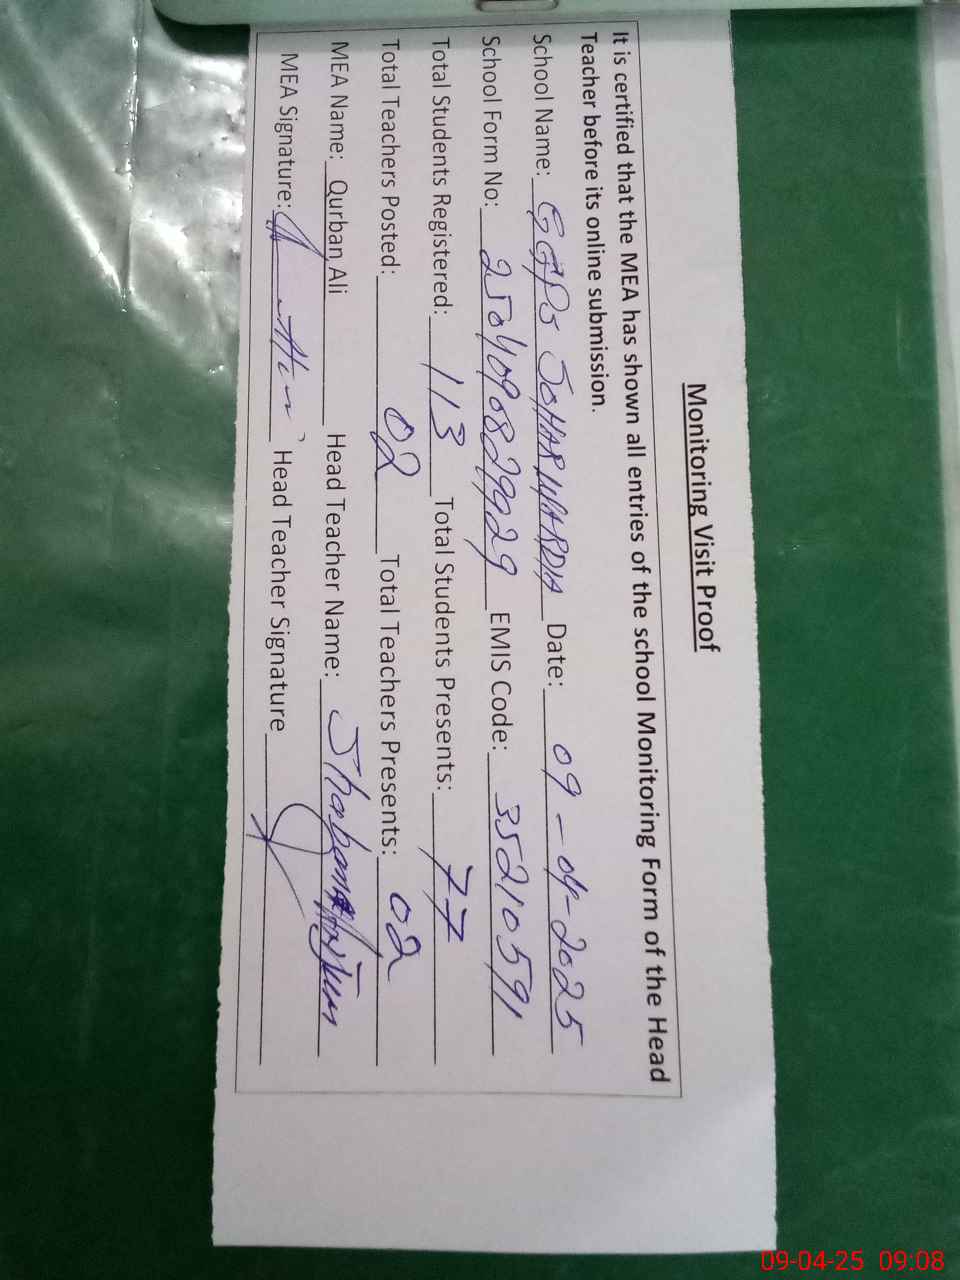 Monitoring Visit Proof
It is certified that the MEA has shown all entries of the school Monitoring Form of the Head
Teacher before its online submission.
School Name: GGPS Date: 09-04-2025
School Form No: 2504090829929 EMIS Code: 35210591
Total Students Registered: 113 Total Students Presents: 77
Total Teachers Posted: 02 Total Teachers Presents: 02
MEA Name: Qurban Ali Head Teacher Name:
MEA Signature: Head Teacher Signature
09-04-25 09:08